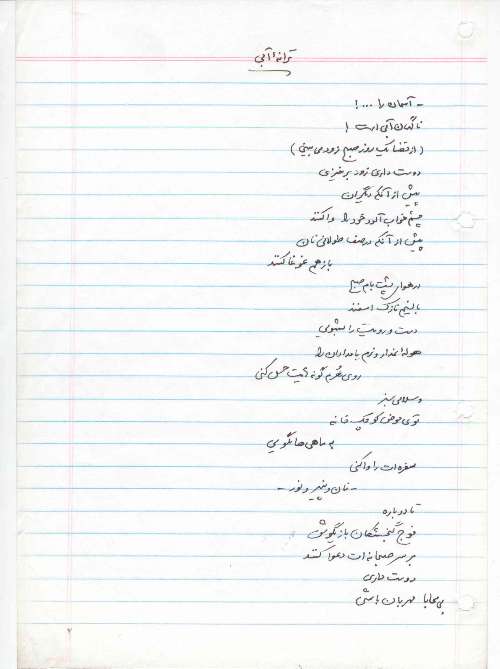 ترانهٔ آبی
- آسمان را ...!
ناگهان آبی است!
(از قضا یک روز صبح زود می‌بینی)
دوست داری زود برخیزی
پیش از آنکه دیگران
چشم خواب آلود خود را وا کنند
پیش از آنکه در صف طولانی نان
باز هم غوغا کنند
در هوای پشت بام صبح
با نسیم نازک اسفند
دست و رویت را بشویی
حولهٔ نمدار و نرم بامدادان را
روی هُرم گونه هایت حس کنی
و سلامی سبز
توی حوض کوچک خانه
به ماهی ها بگویی
سفره ات را وا کنی
- نان و پنیر و نور -
تا دوباره
فوج گنجشگان بازیگوش
بر سر صبحانه ات دعوا کنند
دوست داری
بی محابا مهربان باشی